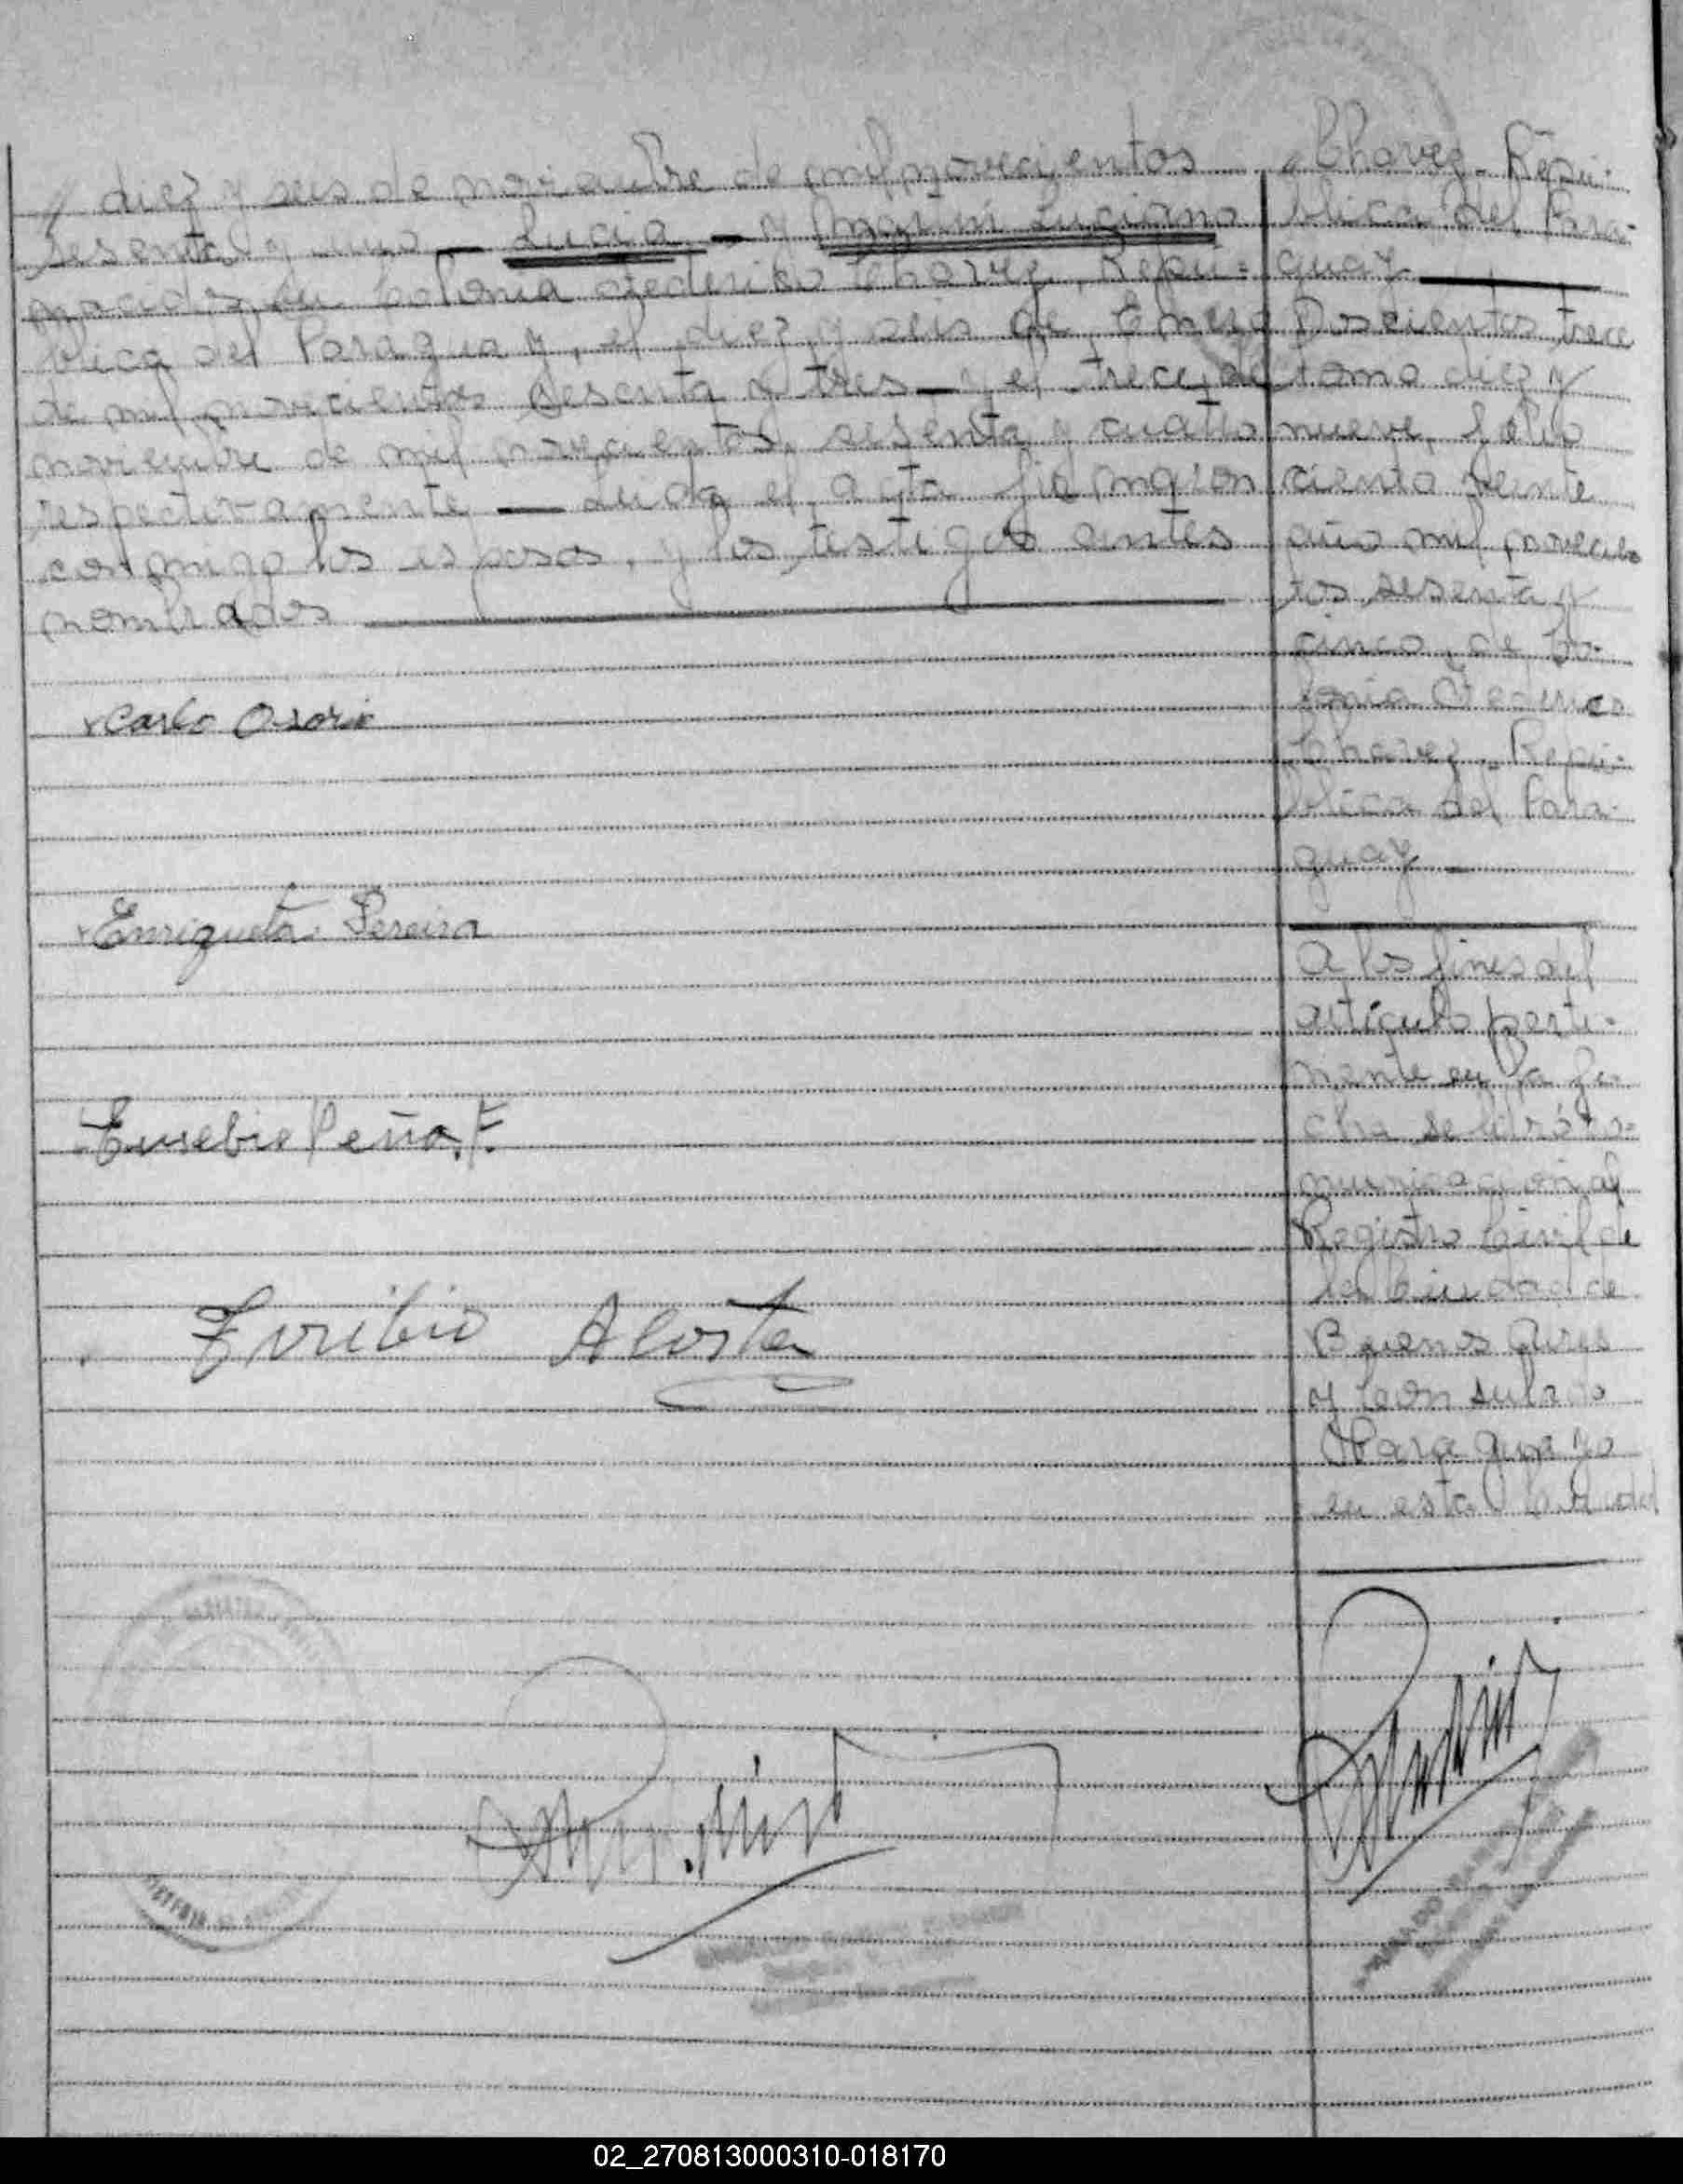 diez y seis de noviembre de mil novecientos
sesenta y uno — Lucia — y Martin Luciano
nacidos en Colonia Federico Chavez, Repu=
blica del Paraguay, el diez y seis de Enero
de mil novecientos sesenta y tres — y el trece de
noviembre de mil novecientos sesenta y cuatro
respectivamente — Leida el acta firmaron
conmigo los esposos, y los testigos antes
nombrados
Carlo Osorio
Enriqueta Pereira
Eusebio Peña F.
Acosta
Chavez - Repu-
blica del Para-
guay
Doscientos trece
tomo diez y
nueve, folio
ciento veinte
año mil novecien
tos sesenta y
cinco, de Co-
lonia Federico
Chavez - Repu-
blica del Para-
guay
A los fines del
artículo perti-
nente en la fe-
cha se libró co-
municación al
Registro Civil de
la Ciudad de
Buenos Aires
y Consulado
Paraguayo
en esta Ciudad
02_270813000310-018170